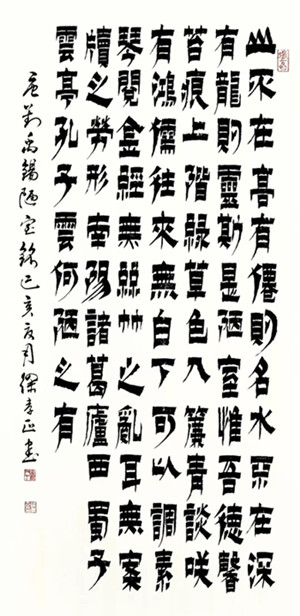 山不在高有僊則名水不在深
有龍則靈斯是陋室惟吾德馨
苔痕上階綠草色入簾青談咲
有鴻儒往來無白丁可以調素
琴閱金經無絲竹之亂耳無案
牘之勞形南陽諸葛廬西蜀子
雲亭孔子雲何陋之有
劉禹錫陋室銘己亥夏月書